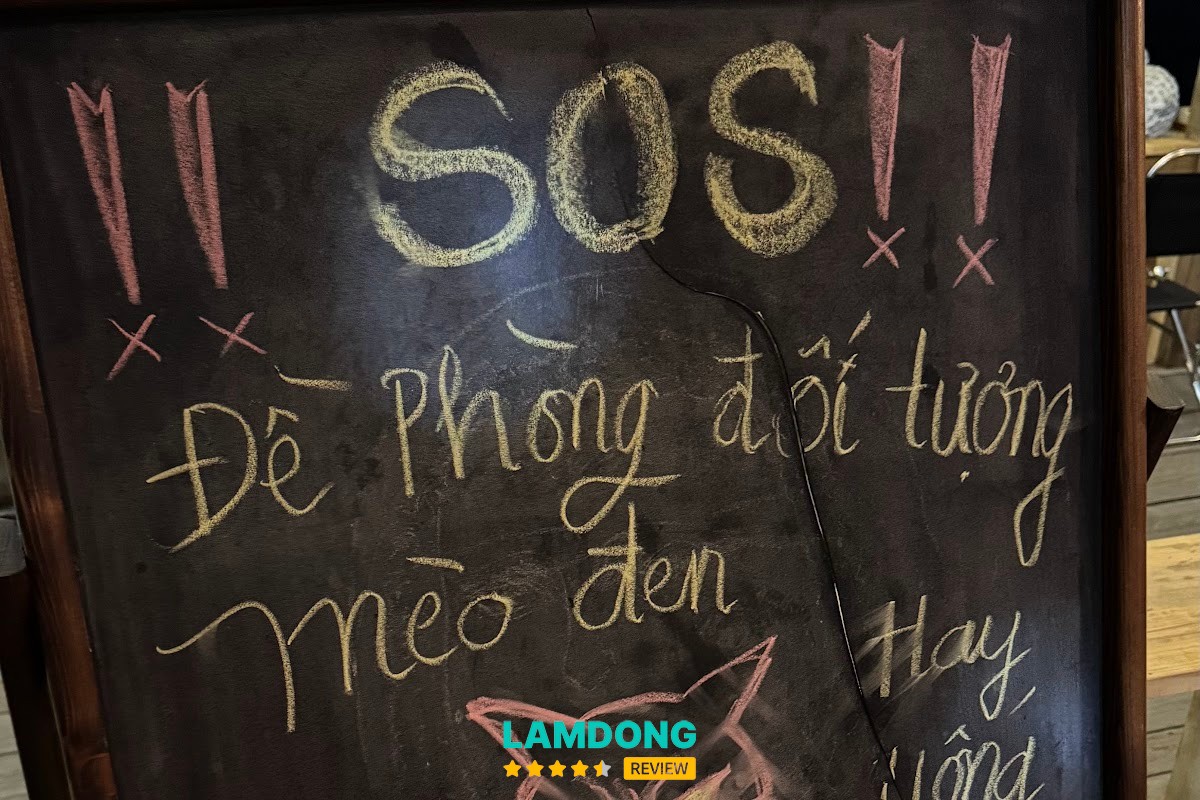 !! SOS !!
Đề phòng đối tượng
mèo đen
Hay
LAMDONG
REVIEW